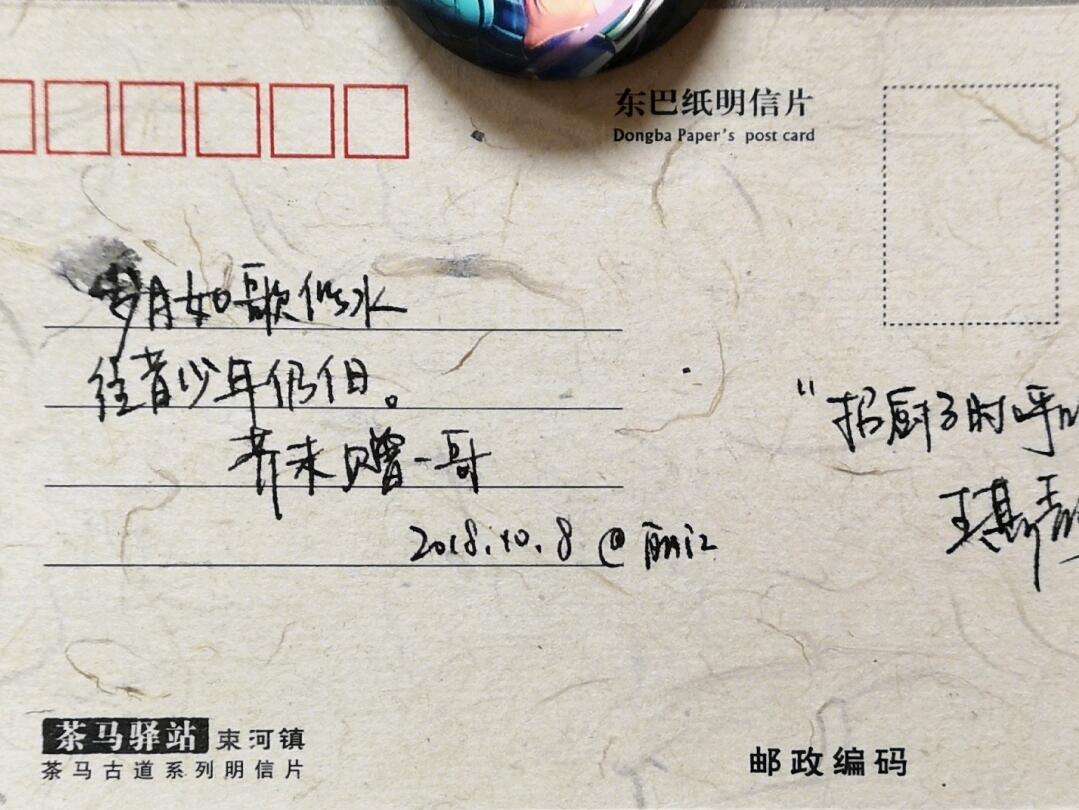 东巴纸明信片
Dongba Paper's post card
岁月如歌似水
往昔少年仍旧。
芥末赠一哥
2018.10.8 @丽江
"招厨子时呼
王斯
茶马驿站 束河镇
茶马古道系列明信片
邮政编码